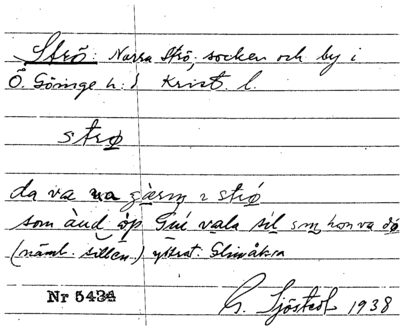 Strö: Norra Strö, socken och by i
Ö. Göinge h:d Krist. l.
strø
da va na gärn i strø
som àud òp Gue vala sil som hon va dø
(näml. sillen.) yttrat. Glimåkra
Nr 5434
G. Sjöstedt 1938